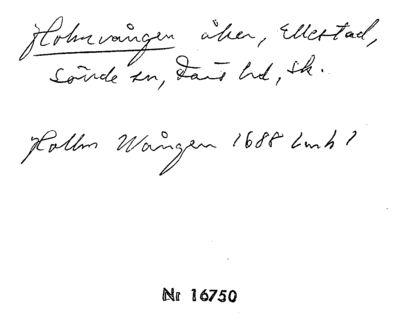 Holmvången åker, Ellestad,
Sövde sn, Färs hd, Sk.
Hollm Wången 1688 Lmh 1
Nr 16750